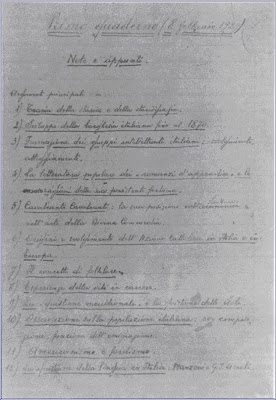 Primo quaderno (8 febbraio 1929)
Note e appunti.
Argomenti principali: —
1) Teoria della storia e della storiografia.
2) Sviluppo della borghesia italiana fino al 1870.
3) Formazione dei gruppi intellettuali italiani: — svolgimento,
atteggiamenti.
4) La letteratura popolare dei "romanzi d'appendice" e le
ragioni della sua persistente fortuna.
5) Cavalcante Cavalcanti: la sua posizione nella
e nell'arte della Divina Commedia.
6) Origini e svolgimento dell'Azione Cattolica in Italia e in
Europa.
7) Il concetto di folklore.
8) Esperienze della vita in carcere.
9) La "quistione meridionale" e la quistione delle isole.
10) Osservazioni sulla popolazione italiana: sua composi-
zione, funzione dell'emigrazione.
11) Americanismo e fordismo.
12) La quistione della lingua in Italia: Manzoni e G. I. Ascoli